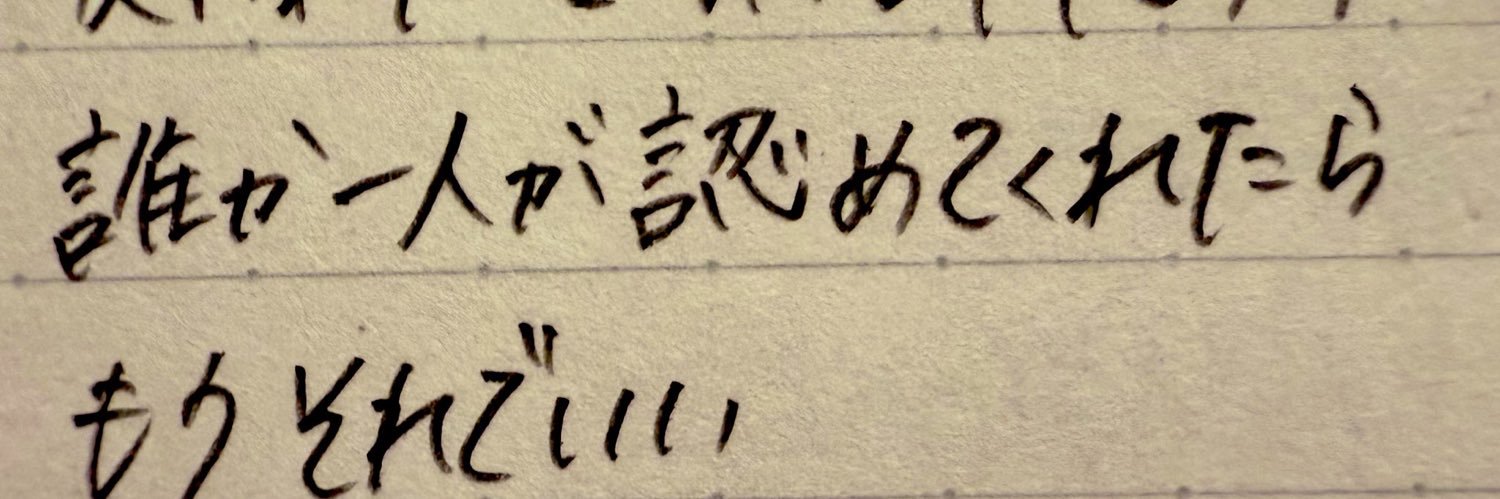 誰か一人が認めてくれたら
もうそれでいい